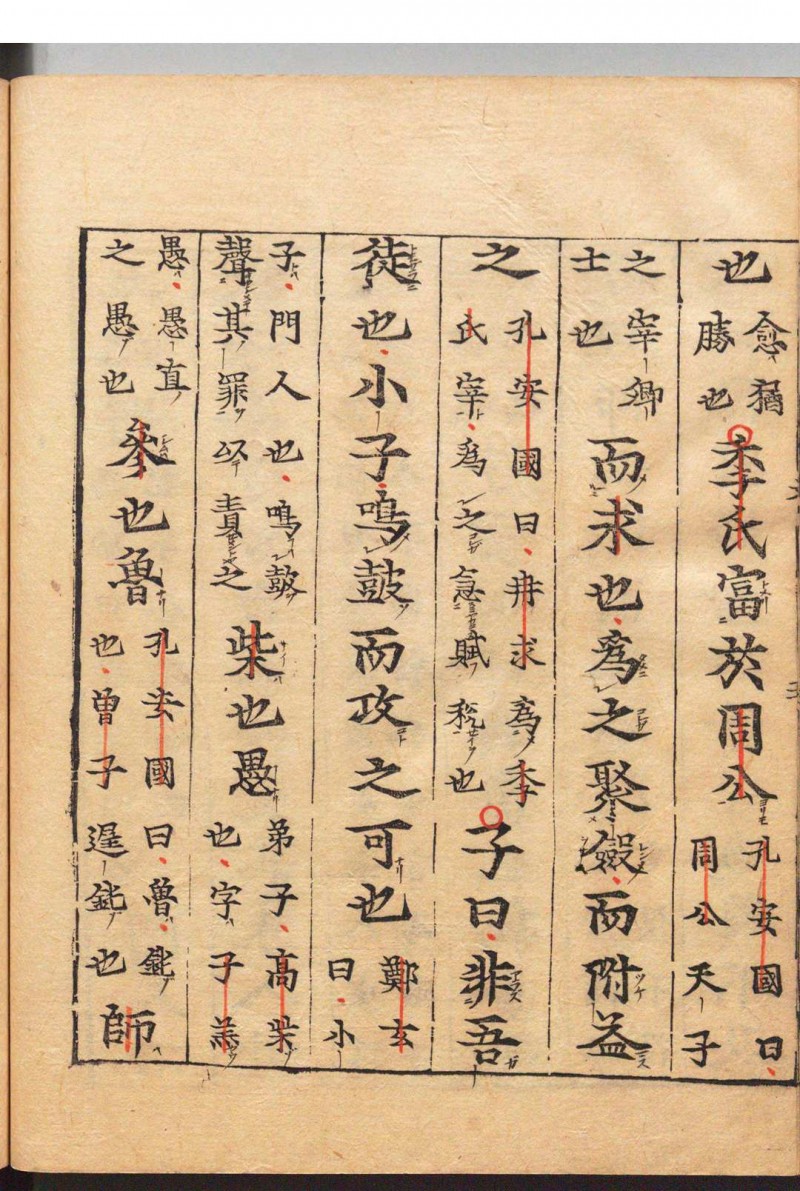 也愈猶勝也季氏富於周公孔安國曰周公天子
之宰卿士也而求也爲之聚斂而附益
之孔安國曰冉求爲季氏宰爲之急賦稅也子曰非吾
徒也小子鳴鼓而攻之可也鄭玄曰小
子門人也鳴鼓聲其罪以責之柴也愚弟子高柴也字子羔
愚愚直之愚也參也魯孔安國曰魯鈍也曾子遲鈍也師